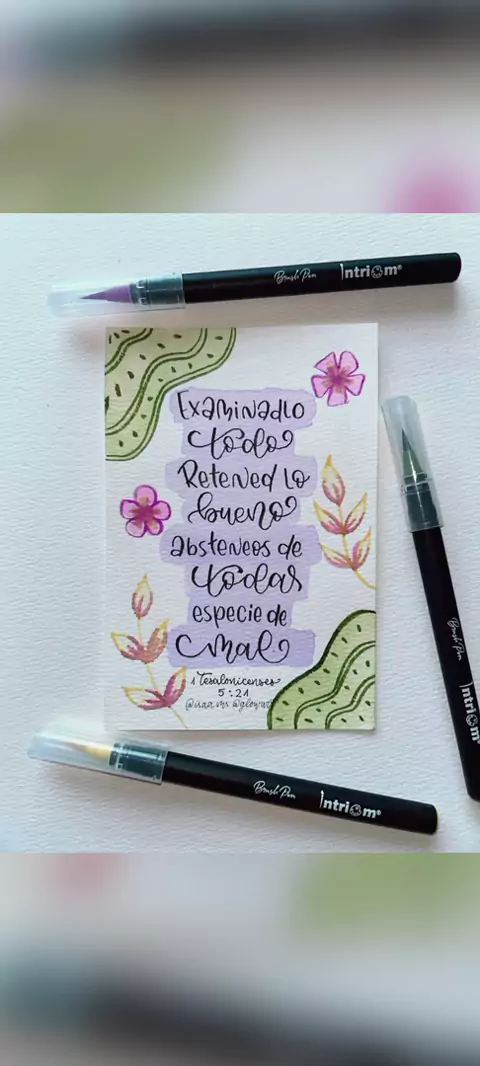 Brush Pen Intriom®
Examinadlo
todo
Retened lo
bueno
absteneos de
todas
especie de
mal
1 Tesalonicenses
5:21
Brush Pen Intriom®
Brush Pen Intriom®